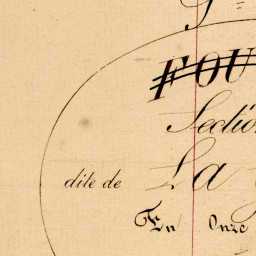 FOU
Section
dite de La
En Onze